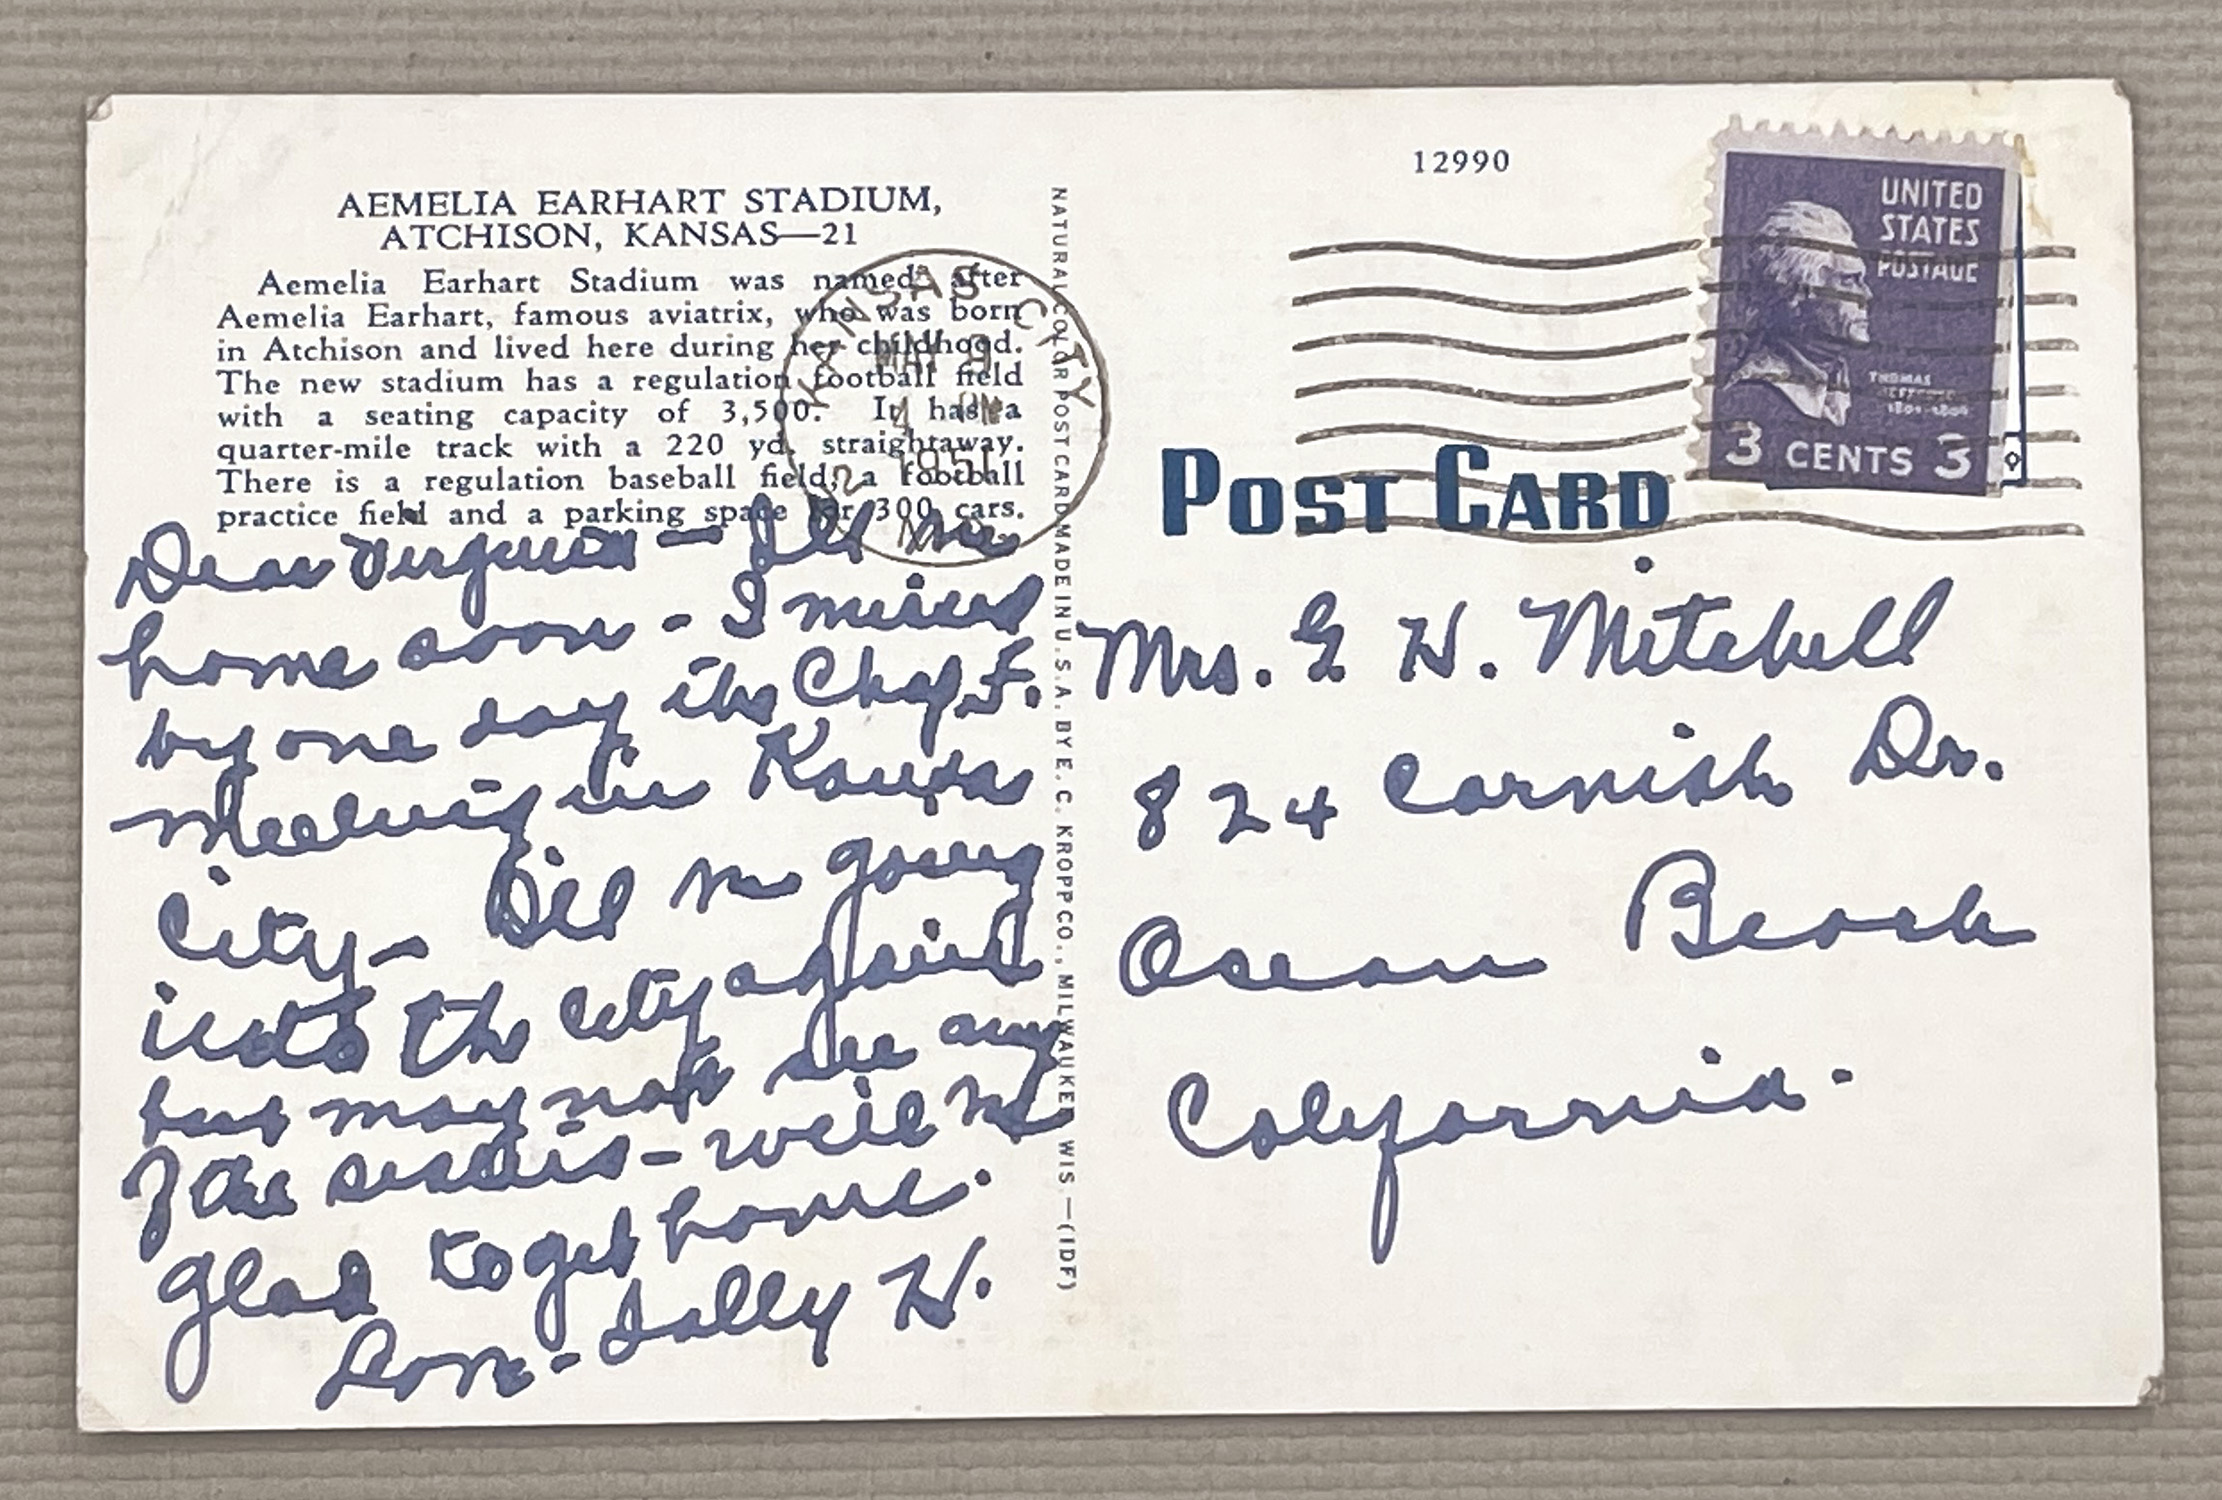 AEMELIA EARHART STADIUM,
ATCHISON, KANSAS—21
Aemelia Earhart Stadium was named after
Aemelia Earhart, famous aviatrix, who was born
in Atchison and lived here during her childhood.
The new stadium has a regulation football field
with a seating capacity of 3,500. It has a
quarter-mile track with a 220 yd. straightaway.
There is a regulation baseball field, a football
practice field and a parking space for 300 cars.
Dear Verginia - Ill be
home soon - I missed
by one day the Chapt.
Meeting in Kansas
City - Ill be going
into the city again
but may not see any
of the sisters - will be
glad to get home.
Love - Sally H.
NATURAL COLOR POST CARD MADE IN U.S.A. BY E. C. KROPP CO., MILWAUKEE, WIS.—(IDF)
12990
KANSAS CITY
MAY 9
PM
1951
UNITED
STATES
POSTAGE
THOMAS
JEFFERSON
1801-1809
3 CENTS 3
POST CARD
Mrs. G. H. Mitchell
824 Cornish Dr.
Ocean Beach
California.